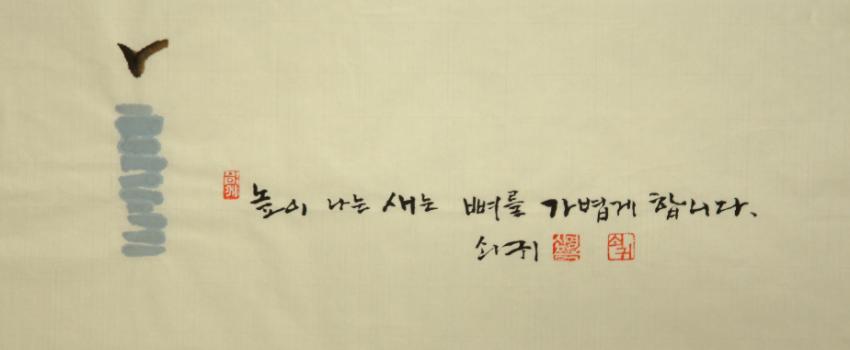 높이 나는 새는 뼈를 가볍게 합니다.
쇠귀
쇠귀